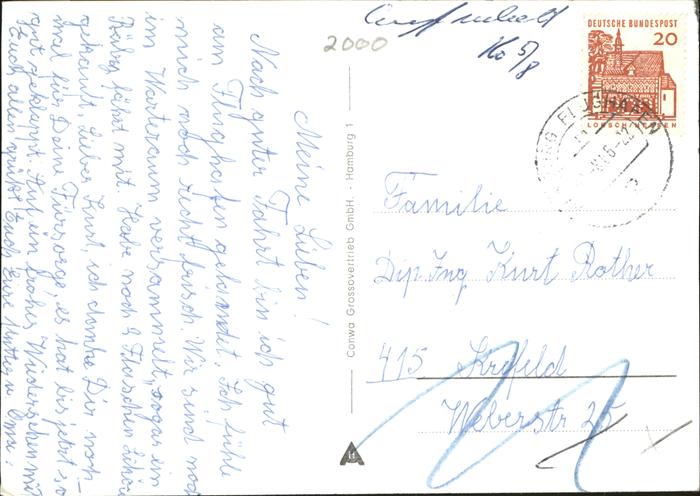 Meine Lieben!
Nach guter Fahrt bin ich gut
am Flughafen gelandet. Ich fühle
mich noch recht frisch. Wir sind nun
im Warteraum versammelt, sogar ein
fährt mit. Habe noch 2 Flaschen
gekauft. Lieber Kurt, ich danke Dir noch-
mal für Deine Fürsorge, es hat bis jetzt so
gut geklappt. Auf ein frohes Wiedersehen mit
Euch allen grüßt Euch Eure Mutter u. Oma.
Conwa Grossovertrieb GmbH. - Hamburg 1
2000
Ko 5/8
DEUTSCHE BUNDESPOST
20
LORSCH/HESSEN
FLUGHAFEN
Familie
Dip. Ing Kurt Rother
415 Krefeld
Weberstr 25